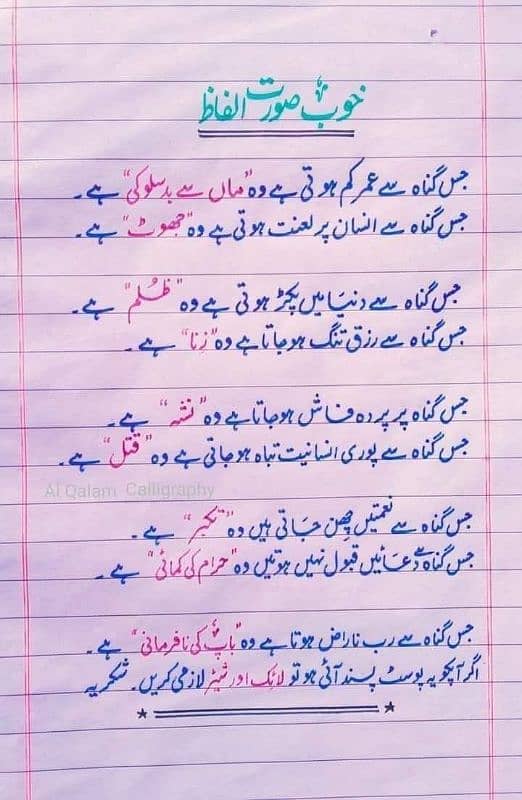 خوب صورت الفاظ
جس گناہ سے عمر کم ہوتی ہے وہ "ماں سے بدسلوکی" ہے۔
جس گناہ سے انسان پر لعنت ہوتی ہے وہ "جھوٹ" ہے۔
جس گناہ سے دنیا میں پکڑ ہوتی ہے وہ "ظُلم" ہے۔
جس گناہ سے رزق تنگ ہوجاتا ہے وہ "زِنا" ہے۔
جس گناہ پر پردہ فاش ہوجاتا ہے وہ "نشہ" ہے۔
جس گناہ سے پوری انسانیت تباہ ہوجاتی ہے وہ "قتل" ہے۔
Al Qalam Calligraphy
جس گناہ سے نعمتیں چھِن جاتی ہیں وہ "تکبر" ہے۔
جس گناہ سے دُعائیں قبول نہیں ہوتیں وہ "حرام کی کمائی" ہے۔
جس گناہ سے رب ناراض ہوتا ہے وہ "باپ کی نافرمانی" ہے۔
اگر آپکو یہ پوسٹ پسند آئی ہو تو لائک اور شیئر لازمی کریں۔ شکریہ